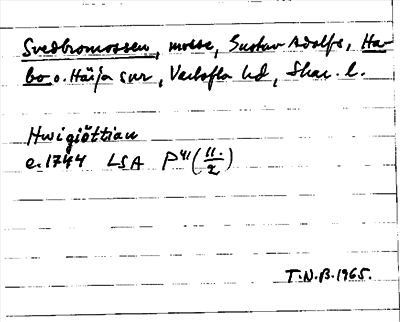 Svedbromossen, mosse, Gustav Adolfs, Ha-
bo o. Härja snr, Vartofta hd, Skar. l.
Hwigiöttian
e. 1744 LSA P41 (11./2)
T.N.B. 1965.